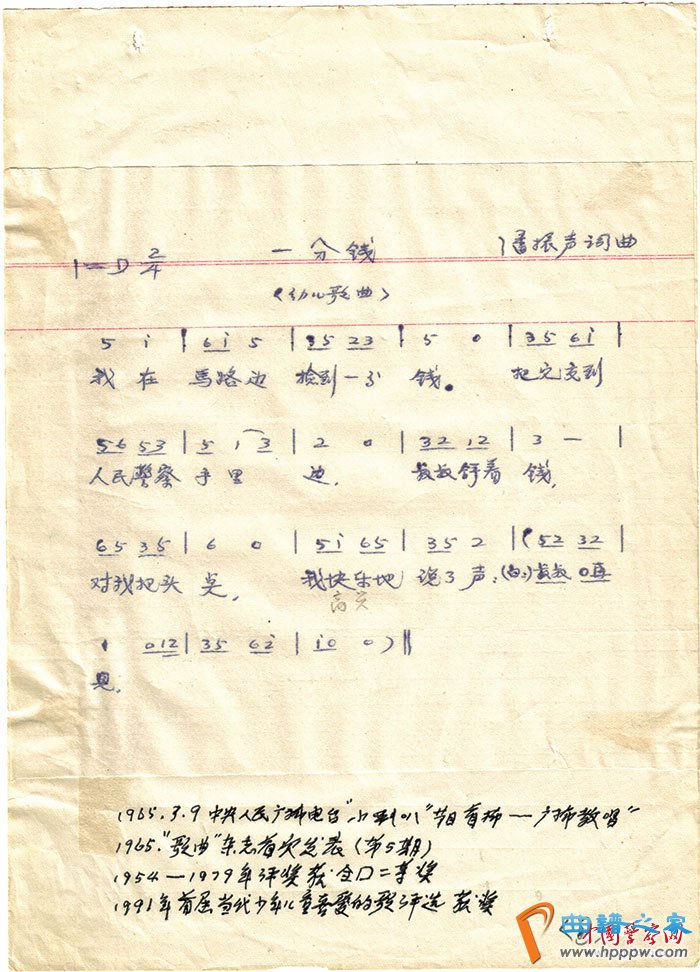 1=D 2/4 一分钱 潘振声词曲
(幼儿歌曲)
5 i | 6i 5 | 35 23 | 5 0 | 35 6i |
我在 馬路边 捡到一分 钱。 把它交到
56 53 | 5 1 3 | 2 0 | 32 12 | 3 — |
人民警察 手里 边, 叔叔拿着 钱,
65 35 | 6 0 | 5i 65 | 35 2 | (52 32 |
对我把头 点, 我快乐地 说了声:(白:)叔叔 再
高兴
1 012 | 35 6i | i0 0 ) ||
见。
1965.3.9 中央人民广播电台"小喇叭"节目首播—广播教唱"
1965."歌曲"杂志首次发表(第5期)
1954—1979年评奖获全国二等奖
1991年首届当代少年儿童喜爱的歌评选 获奖
曲谱之家
中国警察网
www.hppw.com